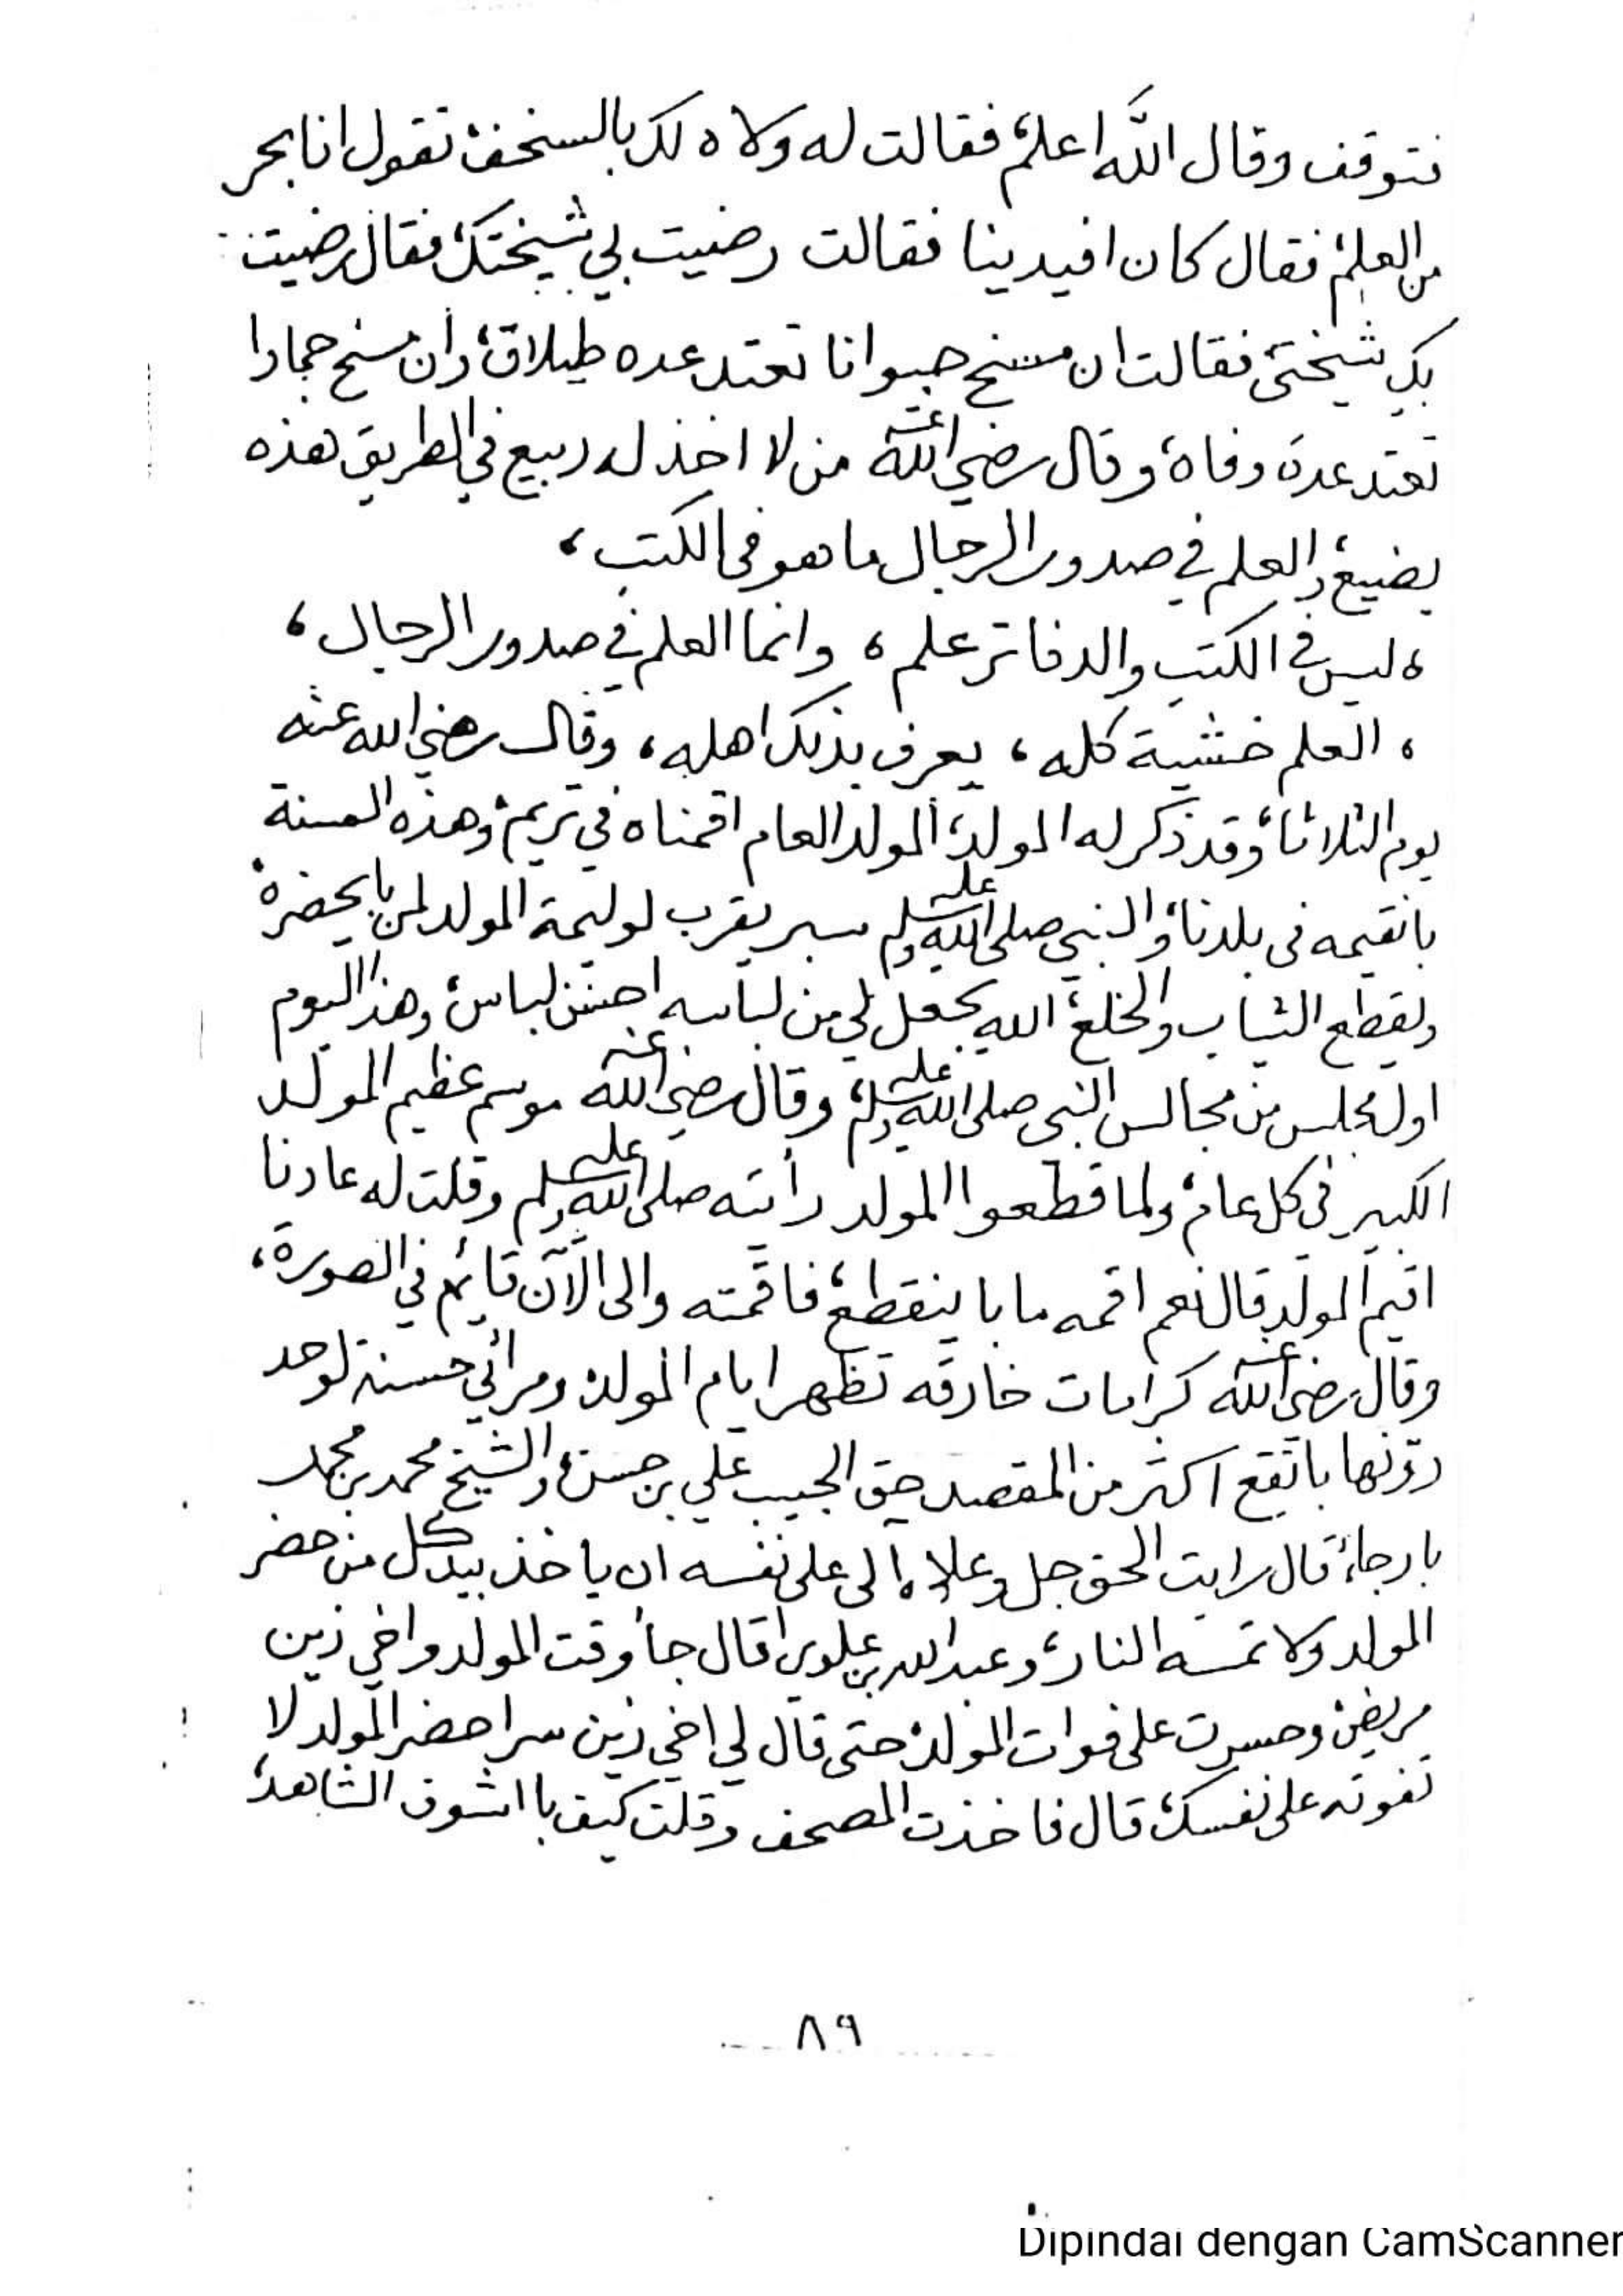 فتوقف وقال الله اعلم، فقالت له ولاه لك بالسخف، تقول انا بحر
من العلم، فقال كان افيدينا فقالت رضيت بي شيختك، فقال رضيت
بك شيختي، فقالت ان مسخ حيوانا تعتد عده طلاق، وان مسخ جمادا
تعتد عدة وفاة، وقال رضي الله عنه من لا اخذ له ربيع في الطريق هذه
يضيع، والعلم في صدور الرجال ما هو في الكتب،
، ليس في الكتب والدفاتر علم ، وانما العلم في صدور الرجال ،
، العلم خشية كله ، يعرف بذلك اهله ، وقال رضي الله عنه
يوم الثلاثاء، وقد ذكر له المولد، المولد العام اقمناه في تريم، وهذه السنة
بانقيمه في بلدنا، والنبي صلى الله عليه وسلم سير يقرب لوليمة المولد لمن بايحضره
ويقطع الثياب والخلع، الله يجعل لي من لباسه احسن لباس، وهذا اليوم
اول مجلس من مجالس النبي صلى الله عليه وسلم، وقال رضي الله عنه موسم عظيم المولد
الكبير في كل عام، ولما قطعوا المولد رأيته صلى الله عليه وسلم وقلت له عادنا
اقيم المولد قال نعم اقمه ما با ينقطع، فاقمته والى الآن قائم في الصورة،
وقال رضي الله عنه كرامات خارقه تظهر ايام المولد، ومرائي حسنة لوحد
دونها باتقع اكثر من المقصد حق الحبيب علي بن حسن، والشيخ محمد بن محمد
بارجاء، قال رايت الحق جل وعلا الى على نفسه ان ياخذ بيد كل من حضر
المولد ولا تمسه النار، وعبدالله بن علوي قال جاء وقت المولد واخي زين
مريض، وحسرت على فوات المولد، حتى قال لي اخي زين سر احضر المولد لا
تفوته على نفسك، قال فاخذت المصحف وقلت كيف با اشوف الشاهد،
٨٩
Dipindai dengan CamScanner